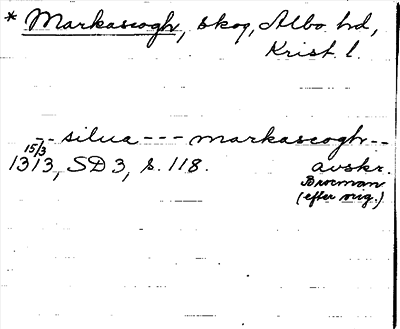 * Markascogh, skog, Albo hd,
Krist. l.
-- silua --- markascogh --
15/3
1313, SD 3, s. 118. avskr.
Brocman
(efter orig.)